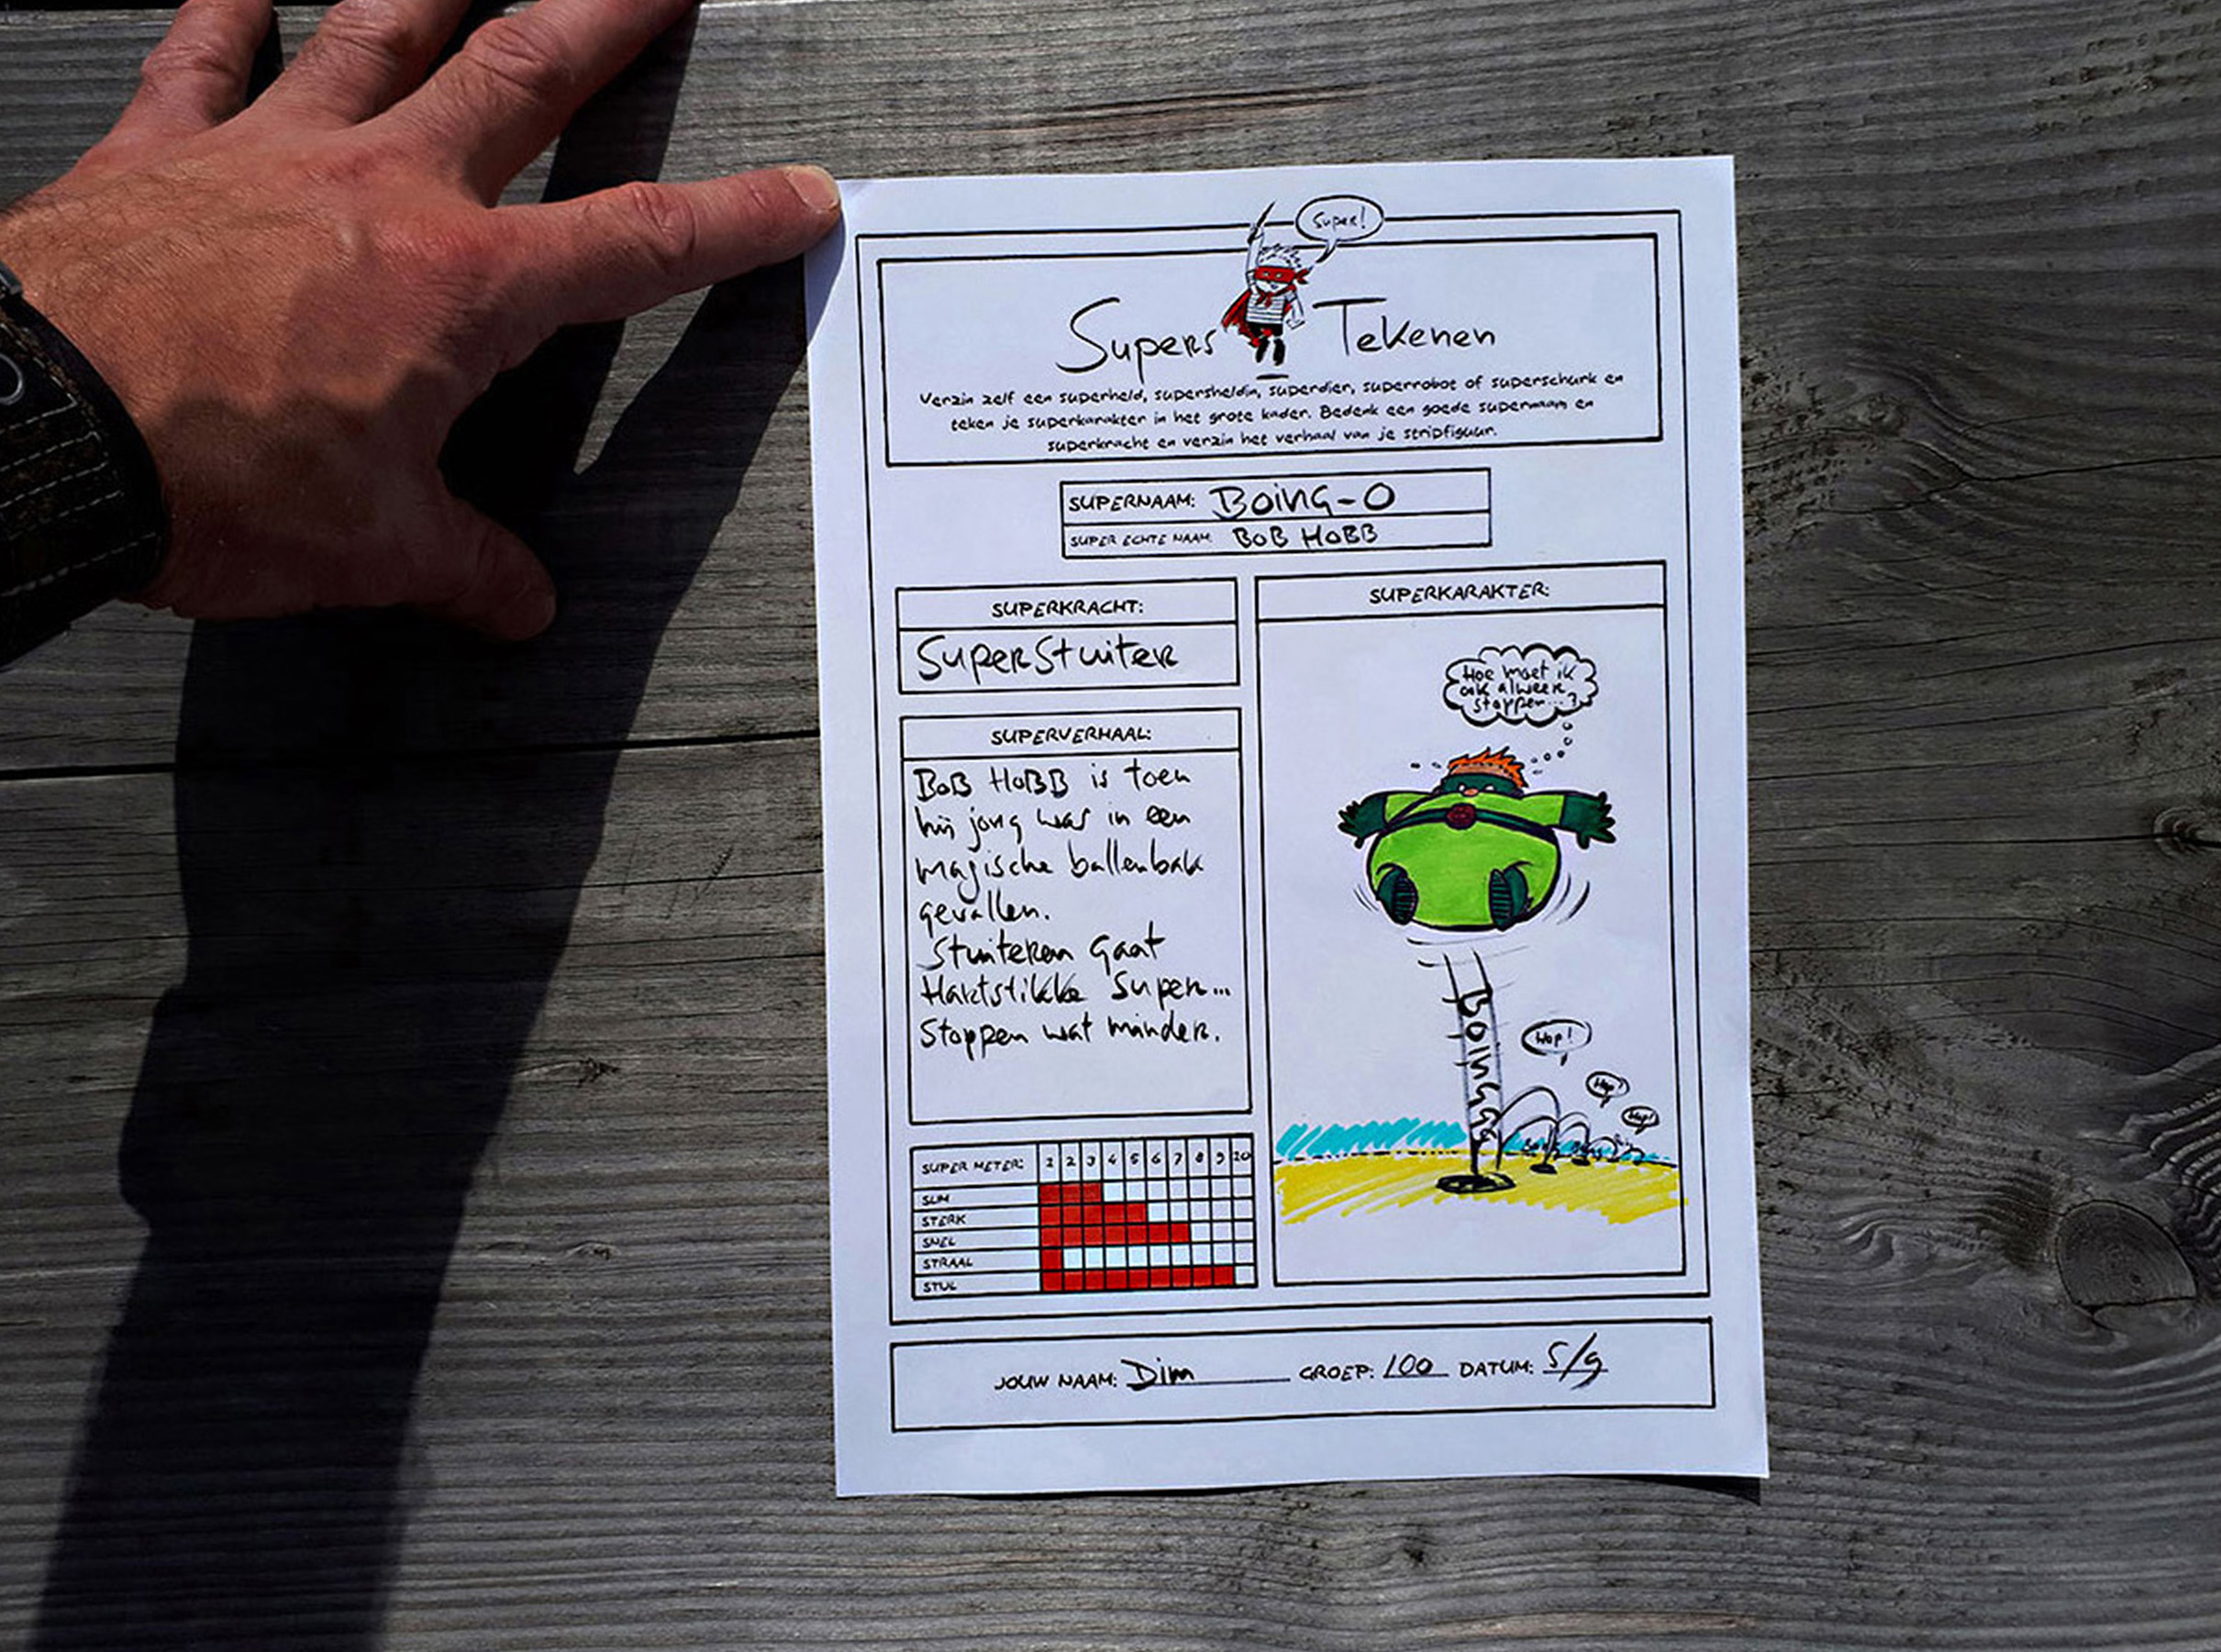 Super!
Supers Tekenen
Verzin zelf een superheld, supersheldin, superdier, superrobot of superschurk en
teken je superkarakter in het grote kader. Bedenk een goede supernaam en
superkracht en verzin het verhaal van je stripfiguur.
SUPERNAAM: BOING-O
SUPER ECHTE NAAM: BOB HOBB
SUPERKRACHT:
SuperStuiter
SUPERVERHAAL:
BOB HOBB is toen
hij jong was in een
magische ballenbak
gevallen.
Stuiteren gaat
Hartstikke Super...
Stoppen wat minder.
SUPER METER: 1 2 3 4 5 6 7 8 9 10
SLIM
STERK
SNEL
STRAAL
STIJL
SUPERKARAKTER:
Hoe moet ik
ook alweer
stoppen...?
Hop!
Hop!
Hop!
JOUW NAAM: Dim GROEP: 100 DATUM: 5/9